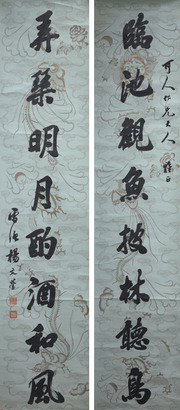 臨池觀魚披林聽鳥
可人仁兄大人
弄琹明月酌酒和風
雪漁楊文瑩